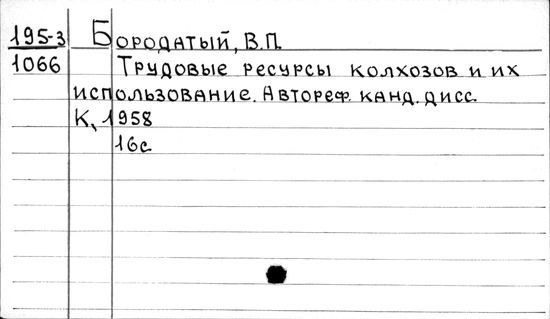 195-3 Бородатый, В.П.
1066 Трудовые ресурсы колхозов и их
использование. Автореф. канд. дисс.
К., 1958
16с.